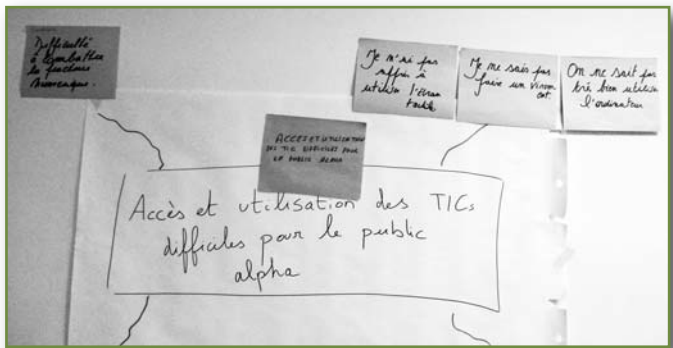 Difficulté
à combattre
la fracture
numérique.
Je n'ai pas
appris à
utiliser l'écran
tactile
Je ne sais pas
faire un virem
ent.
On ne sait pas
trè bien utiliser
l'ordinateur
ACCES ET UTILISATION
DES TIC DIFFICILES POUR
LE PUBLIC ALPHA
Accès et utilisation des TICs
difficiles pour le public
alpha